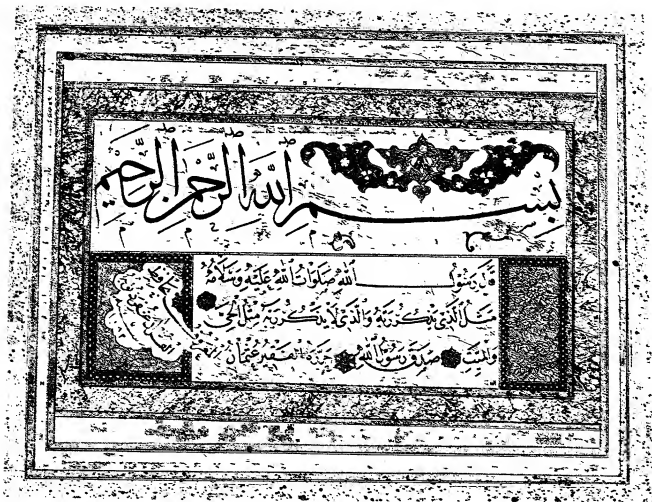 بِسْمِ اللهِ الرَّحْمنِ الرَّحِيمِ
قَالَ رَسُولُ اللهِ صَلَوَاتُ اللهِ عَلَيْهِ وَسَلَامُهُ
مَثَلُ الَّذِي يَذْكُرُ رَبَّهُ وَالَّذِي لَا يَذْكُرُ رَبَّهُ مَثَلُ الْحَيِّ
وَالْمَيِّتِ صَدَقَ رَسُولُ اللهِ حَرَّرَهُ الْفَقِيرُ عُثْمَانُ